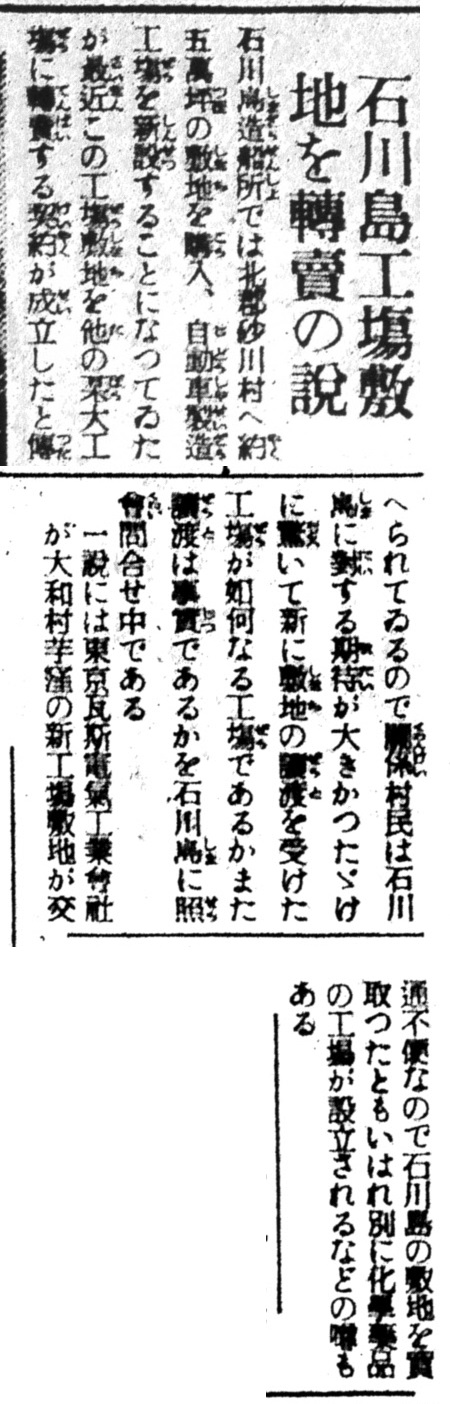 石川島工場敷
地を轉賣の説
石川島造船所では北郡砂川村へ約
五萬坪の敷地を購入、自動車製造
工場を新設することになつてゐた
が最近この工場敷地を他の某大工
場に轉賣する契約が成立したと傳
へられてゐるので關係村民は石川
島に對する期待が大きかつたゞけ
に驚いて新に敷地の讓渡を受けた
工場が如何なる工場であるかまた
讓渡は事實であるかを石川島に照
會問合せ中である
一説には東京瓦斯電氣工業會社
が大和村芋窪の新工場敷地が交
通不便なので石川島の敷地を買
取つたともいはれ別に化學藥品
の工場が設立されるなどの噂も
ある